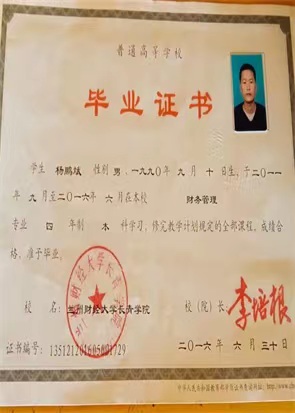 普通高等学校
毕业证书
学生 杨鹏斌 性别 男，一九九〇年 九 月 十 日生，于二〇一一
年 九 月至二〇一六年 六 月在本校 财务管理
专业 四 年制 本 科学习，修完教学计划规定的全部课程，成绩合
格，准予毕业。
校 名： 兰州财经大学长青学院 校（院）长： 李培根
证书编号：135121201605001729 二〇一六年 六 月 三十 日
中华人民共和国教育部学历证书查询网址：http://www.ch